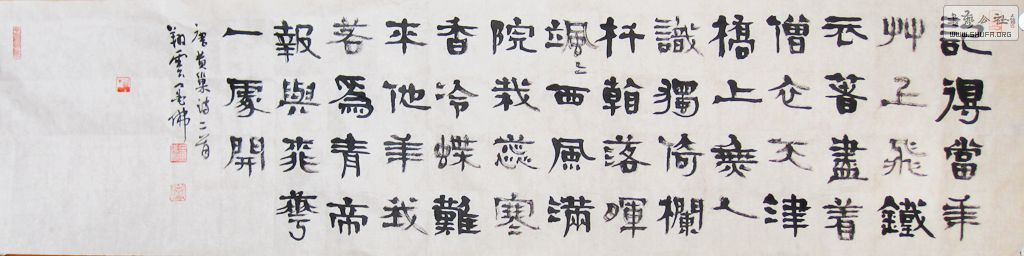 記得當年
艸上飛鐵
衣著盡着
僧衣天津
橋上無人
識獨倚欄
杆看落暉
颯〻西風滿
院栽蕊寒
香冷蝶難
來他年我
若為青帝
報與桃華
一處開
唐黃巢詩二首
翔雲
書藝公社
WWW.SHUFA.ORG